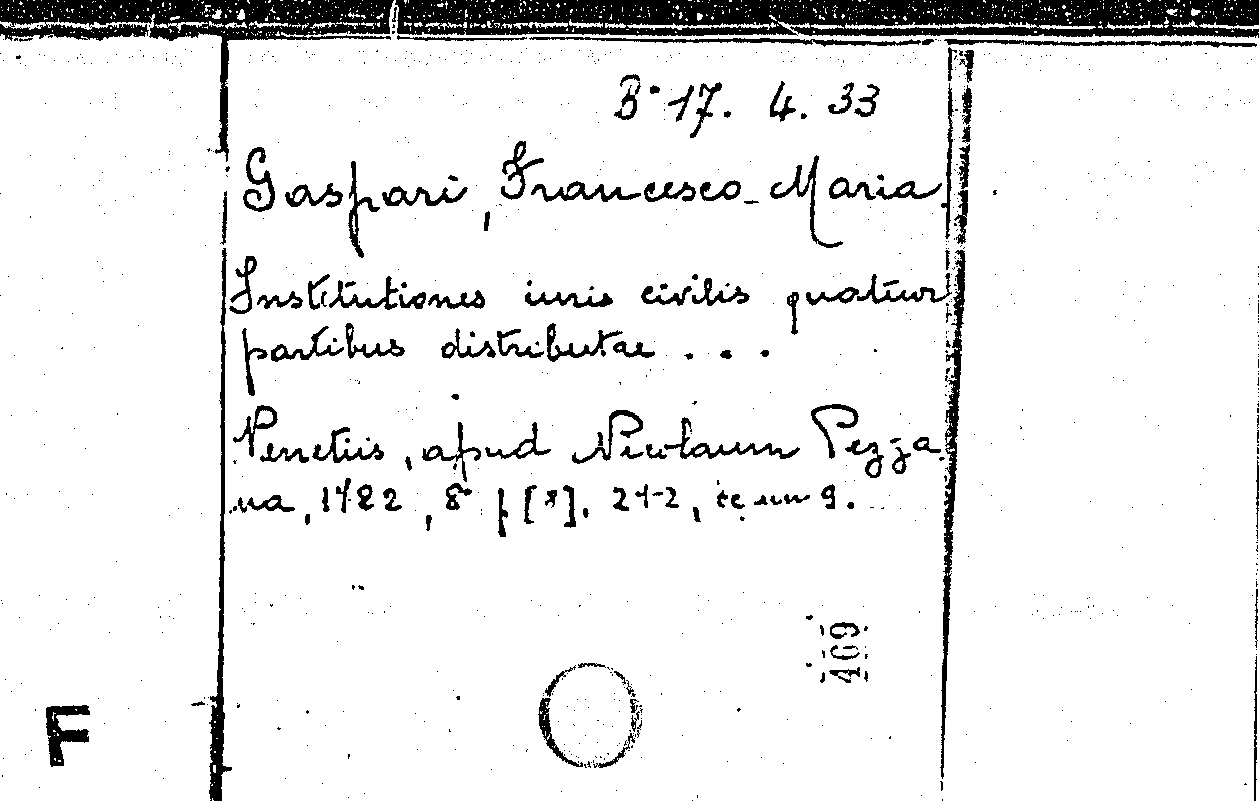 B° 17. 4. 33
Gaspari, Francesco-Maria.
Institutiones iuris civilis quatuor
partibus distributae . . .
Venetiis, apud Nicolaum Pezza
na, 1782, 8° p [8], 212, cc
469
F